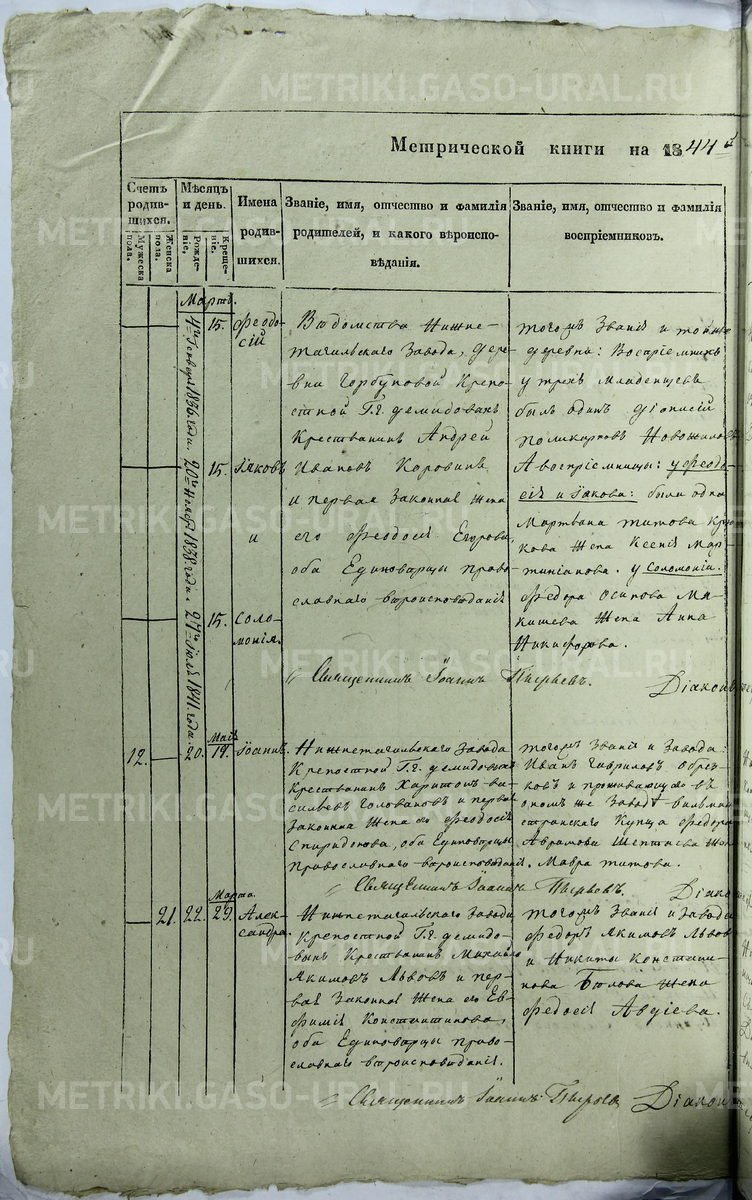 METRIKI.GASO-URAL.RU
Метрической книги на 1844й
Счетъ родившихся.
Мужеска пола.
Женска пола.
Мѣсяцъ и день.
Рожденіе.
Крещеніе.
Имена родившихся.
Званіе, имя, отчество и фамилія родителей, и какого вѣроисповѣданія.
Званіе, имя, отчество и фамилія воспріемниковъ.
Мартъ.
4го Генваря 1836. года. 20го Ноября 1838 года. 27го Іюля 1841. года.
15. Ѳеодосій
15. Іяковъ
и
15. Соломонія.
Вѣдомства Нижнетагильскаго Завода, деревни Горбуновой Крепостной Г.г. Демидовыхъ
Крестьянинъ Андрей
Ивановъ Коровинъ
и первая законная жена
его Ѳеодосія Егорова,
оба Единоверцы Православнаго вѣроисповѣданія
тогожъ Званія и тойже
деревни: Воспріемникъ
у трехъ младенцевъ
былъ одинъ Діонисій
Поликарповъ Новожиловъ
А воспріемницы: у Ѳеодосія и Іякова: были одна
жена Ксенія Мартиніанова. у Соломоніи.
Ѳедора Осипова
жена Анна
Никифорова.
Священникъ Іоаннъ Пырьевъ.
Діаконъ
12.
20.
Май
19.
Іоаннъ.
Нижнетагильскаго Завода
Крепостной Г.г. Демидовыхъ
Крестьянинъ Харитонъ Васильевъ Головановъ и первая
законная жена его Ѳеодосія
Спиридонова, оба Единоверцы
Православнаго вѣроисповѣданія.
тогожъ Званія и Завода:
Иванъ Гавриловъ
и проживающаго въ
ономъ же Заводѣ
Купца Ѳедора
Абрамова
Мавра Титова.
Священникъ Іоаннъ Пырьевъ.
21.
22.
Марта.
29.
Александра.
Нижнетагильскаго Завода
Крепостной Г.г. Демидовыхъ Крестьянинъ Михайло
Якимовъ Львовъ и первая законная жена его Евфимія Константинова,
оба Единоверцы Православнаго вѣроисповѣданія.
тогожъ Званія и Завода
Ѳедоръ Якимовъ Львовъ
и Никиты Константинова Бѣлова жена
Ѳедосія Авдіева.
Священникъ Іоаннъ Пырьевъ
Діаконъ